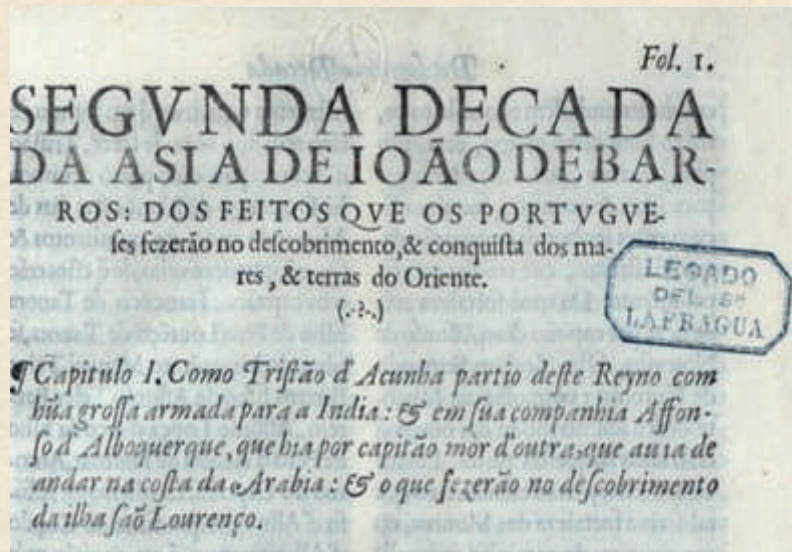 Fol. 1.
SEGVNDA DECADA
DA ASIA DE IOÃO DE BAR-
ROS: DOS FEITOS QVE OS PORTVGVE-
ſes fezerão no deſcobrimento, & conquiſta dos ma-
res, & terras do Oriente.
(.-?-.)
LEGADO
DEL SR
LAFRAGUA
¶ Capitulo I. Como Triſtão d'Acunha partio deſte Reyno com
hũa groſſa armada para a India: & em ſua companhia Affon-
ſo d'Alboquerque, que hia por capitão mor d'outra, que auia de
andar na coſta da Arabia: & o que fezerão no deſcobrimento
da ilha ſaõ Lourenço.